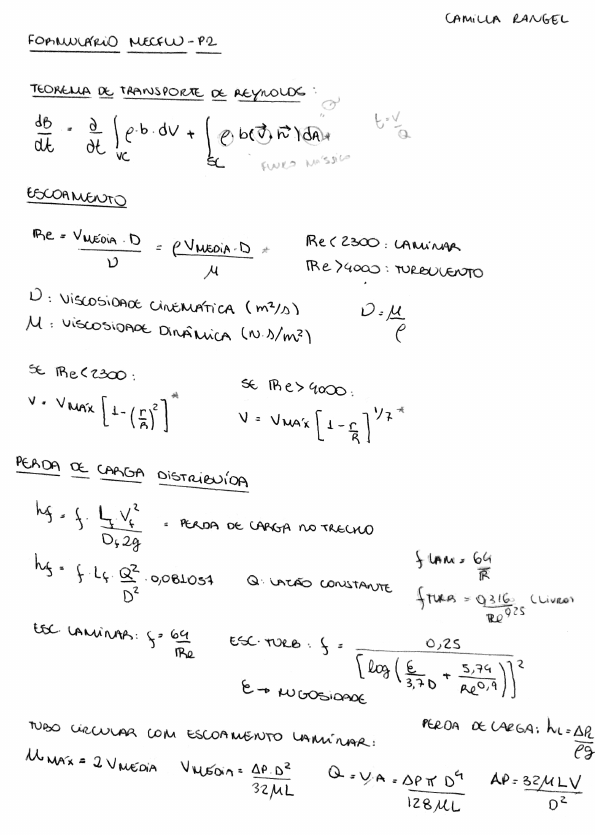 CAMILLA RANGEL
FORMULÁRIO MECFLU - P2
TEOREMA DE TRANSPORTE DE REYNOLDS:
dB/dt = ∂/∂t ∫_VC ρ·b·dV + ∫_SC ρ·b(V⃗·n⃗)dA
t=V/Q
FLUXO MÁSSICO
ESCOAMENTO
Re = VMÉDIA·D/ν = ρVMÉDIA·D/μ * Re<2300: LAMINAR
Re>4000: TURBULENTO
ν: VISCOSIDADE CINEMÁTICA (m²/s) ν=μ/ρ
μ: VISCOSIDADE DINÂMICA (N.s/m²)
SE Re<2300: SE Re>4000:
V = VMÁX [1-(r/R)²]* V = VMÁX [1-r/R]^1/7*
PERDA DE CARGA DISTRIBUÍDA
hf = f· Lf Vf²/Df 2g = PERDA DE CARGA NO TRECHO
hf = f·Lf·Q²/D²·0,081057 Q: VAZÃO CONSTANTE
f LAM = 64/R
f TURB = 0,316/Re^0,25 (LIVRO)
ESC. LAMINAR: f=64/Re ESC. TURB: f = 0,25/[log(ε/3,7D + 5,74/Re^0,9)]²
ε → RUGOSIDADE
TUBO CIRCULAR COM ESCOAMENTO LAMINAR: PERDA DE CARGA: hL=ΔPL/ρg
μMAX = 2VMÉDIA VMÉDIA = ΔP.D²/32μL Q = V.A = ΔPπD⁴/128μL ΔP=32μLV/D²